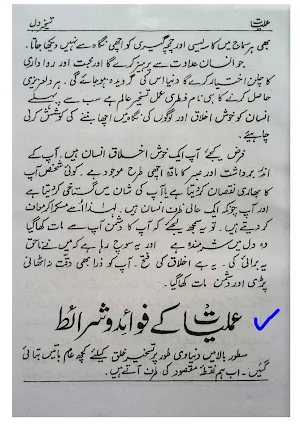 عملیات تسخیر دل
بھی ہر سماج میں کارلیسی اور چمچہ گیری کو اچھی نگاہ سے نہیں دیکھا جاتا۔
جو انسان علاوت سے پرہیز کرے گا اور محبت اور رواداری
کا چلن اختیار کرے گا دنیا اس کی گرویدہ ہو جائے گی۔ ہر دلعزیزی
حاصل کرنے کا ہی نام فطری عمل تسخیر عالم ہے سب سے پہلے
انسان کو خوش اخلاق اور لوگوں کی نگاہ میں اچھا بننے کی کوشش کرنی
چاہیئے۔
فرض کیجئے آپ ایک خوش اخلاق انسان ہیں۔ آپ کے
اندر برداشت اور صبر کا مادہ اچھی طرح موجود ہے۔ کوئی شخص آپ
کا بھاری نقصان کر دیتا ہے یا آپ کی شان میں گستاخی کر دیتا ہے
اور آپ چونکہ ایک عالی ظرف انسان ہیں۔ لہٰذا اسے مسکرا کر معاف
کر دیتے ہیں۔ تو یہ سمجھ لیجئے کہ آپ کا دشمن آپ سے مات کھا گیا
وہ دل میں شرمندہ ہے اور یہ سوچ رہا ہے کہ میں نے ناحق
یہ برائی کی۔ یہ ہے اخلاق کی فتح۔ آپ کو ذرا بھی دقت نہ اٹھانی
پڑی اور دشمن مات کھا گیا۔
عملیات کے فوائد و شرائط
سطور بالا میں دنیاوی طور پر تسخیر خلق کیلئے کچھ عام باتیں بتائی
گئیں۔ اب ہم نقطۂ مقصود کی طرف آتے ہیں۔